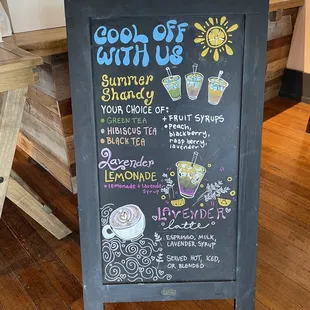 COOL OFF
WITH US
Summer
Shandy
YOUR CHOICE OF:
• GREEN TEA
• HIBISCUS TEA
• BLACK TEA
+ FRUIT SYRUPS
• peach,
blackberry,
raspberry,
lavender
Lavender
LEMONADE
• lemonade + lavender
syrup
LAVENDER
latte
ESPRESSO, MILK,
LAVENDER SYRUP
SERVED HOT, ICED,
OR BLENDED